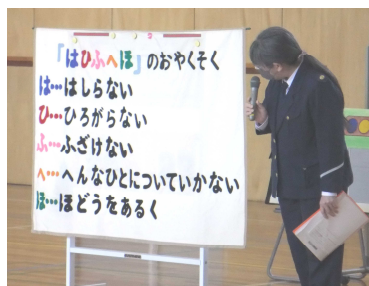 「はひふへほ」のおやくそく
は…はしらない
ひ…ひろがらない
ふ…ふざけない
へ…へんなひとについていかない
ほ…ほどうをあるく